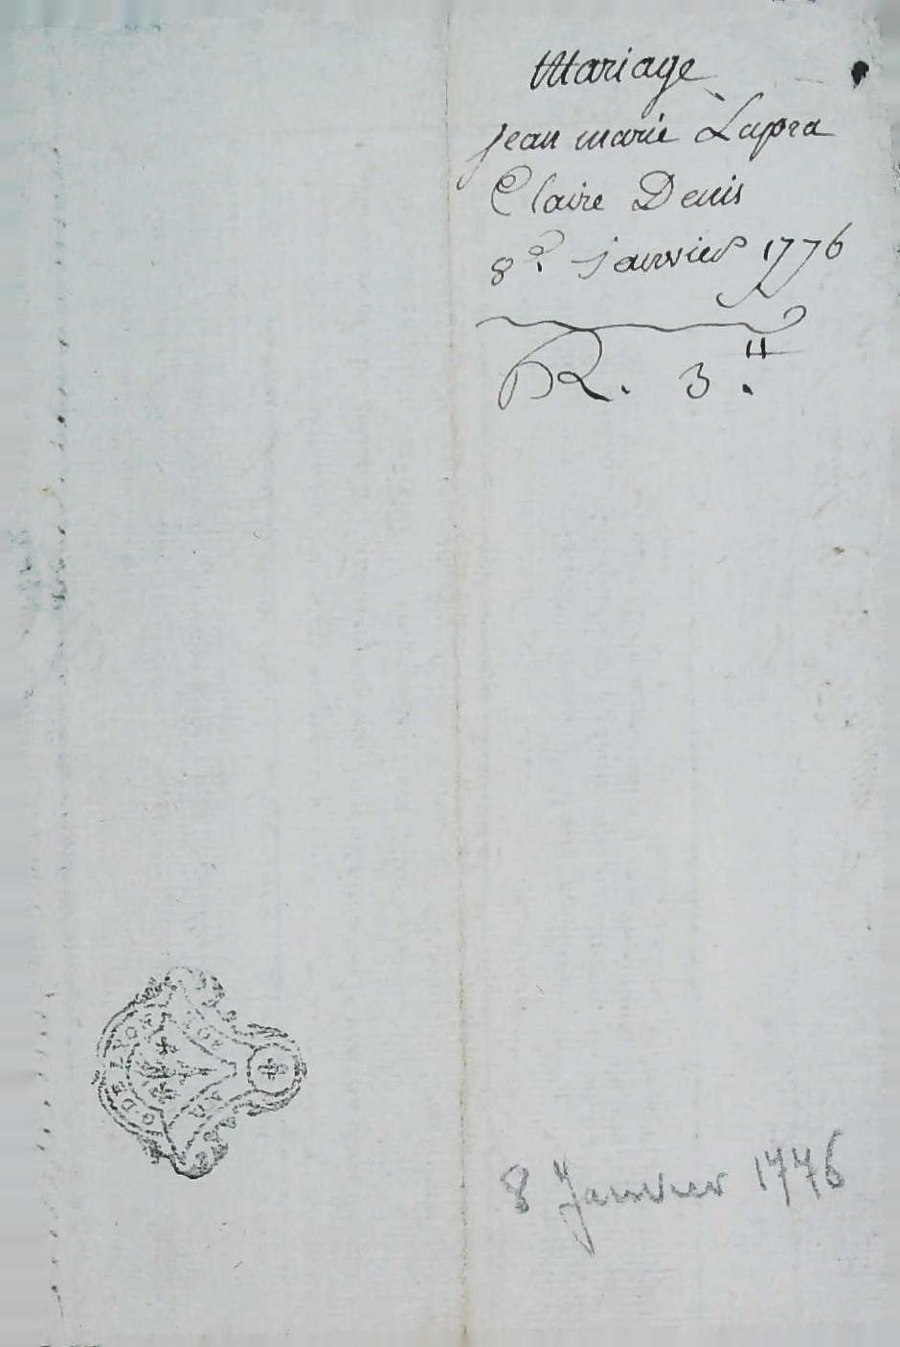 Mariage
jean marie Lapra
Claire Denis
8e. janvier 1776
R. 3.ᴴ
8 Janvier 1776